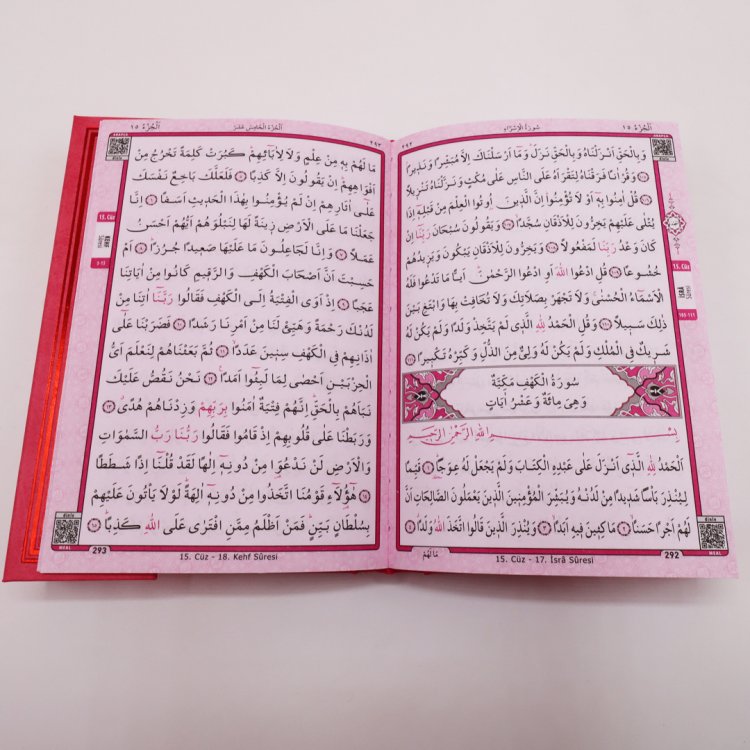 اَلْجُزْءُ ١٥
سُورَةُ الْاِسْرَاءِ
٢٩٢
وَبِالْحَقِّ اَنْزَلْنَاهُ وَبِالْحَقِّ نَزَلَ وَمَٓا اَرْسَلْنَاكَ اِلَّا مُبَشِّرًا وَنَذِيرًا
﴿١٠٥﴾ وَقُرْاٰنًا فَرَقْنَاهُ لِتَقْرَاَهُ عَلَى النَّاسِ عَلٰى مُكْثٍ وَنَزَّلْنَاهُ تَنْزِيلًا
﴿١٠٦﴾ قُلْ اٰمِنُوا بِهٖٓ اَوْ لَا تُؤْمِنُوا اِنَّ الَّذِينَ اُو۫تُوا الْعِلْمَ مِنْ قَبْلِهٖٓ اِذَا
يُتْلٰى عَلَيْهِمْ يَخِرُّونَ لِلْاَذْقَانِ سُجَّدًا ﴿١٠٧﴾ وَيَقُولُونَ سُبْحَانَ رَبِّنَٓا اِنْ
كَانَ وَعْدُ رَبِّنَا لَمَفْعُولًا ﴿١٠٨﴾ وَيَخِرُّونَ لِلْاَذْقَانِ يَبْكُونَ وَيَزِيدُهُمْ
خُشُوعًا ﴿١٠٩﴾ قُلِ ادْعُوا اللّٰهَ اَوِ ادْعُوا الرَّحْمٰنَ اَيًّا مَا تَدْعُوا فَلَهُ
الْاَسْمَٓاءُ الْحُسْنٰى وَلَا تَجْهَرْ بِصَلَاتِكَ وَلَا تُخَافِتْ بِهَا وَابْتَغِ بَيْنَ
ذٰلِكَ سَبِيلًا ﴿١١٠﴾ وَقُلِ الْحَمْدُ لِلّٰهِ الَّذِى لَمْ يَتَّخِذْ وَلَدًا وَلَمْ يَكُنْ لَهُ
شَرِيكٌ فِى الْمُلْكِ وَلَمْ يَكُنْ لَهُ وَلِىٌّ مِنَ الذُّلِّ وَكَبِّرْهُ تَكْبِيرًا ﴿١١١﴾
سُورَةُ الْكَهْفِ مَكِّيَّةٌ
وَهِىَ مِائَةٌ وَعَشْرُ اٰيَاتٍ
بِسْمِ اللّٰهِ الرَّحْمٰنِ الرَّحِيمِ
اَلْحَمْدُ لِلّٰهِ الَّذِٓى اَنْزَلَ عَلٰى عَبْدِهِ الْكِتَابَ وَلَمْ يَجْعَلْ لَهُ عِوَجًا ﴿١﴾ قَيِّمًا
لِيُنْذِرَ بَاْسًا شَدِيدًا مِنْ لَدُنْهُ وَيُبَشِّرَ الْمُؤْمِنِينَ الَّذِينَ يَعْمَلُونَ الصَّالِحَاتِ اَنَّ
لَهُمْ اَجْرًا حَسَنًا ﴿٢﴾ مَاكِثِينَ فِيهِ اَبَدًا ﴿٣﴾ وَيُنْذِرَ الَّذِينَ قَالُوا اتَّخَذَ اللّٰهُ وَلَدًا ﴿٤﴾
مَا لَهُمْ
15. Cüz - 17. İsrâ Sûresi
292
15. Cüz
İSRÂ
Sûresi
105-111
MEAL
اَلْجُزْءُ ١٥
اَلْجُزْءُ الْخَامِسَ عَشَرَ
٢٩٣
مَا لَهُمْ بِهٖ مِنْ عِلْمٍ وَلَا لِاٰبَٓائِهِمْ كَبُرَتْ كَلِمَةً تَخْرُجُ مِنْ
اَفْوَاهِهِمْ اِنْ يَقُولُونَ اِلَّا كَذِبًا ﴿٥﴾ فَلَعَلَّكَ بَاخِعٌ نَفْسَكَ
عَلٰٓى اٰثَارِهِمْ اِنْ لَمْ يُؤْمِنُوا بِهٰذَا الْحَدِيثِ اَسَفًا ﴿٦﴾ اِنَّا
جَعَلْنَا مَا عَلَى الْاَرْضِ زِينَةً لَهَا لِنَبْلُوَهُمْ اَيُّهُمْ اَحْسَنُ
عَمَلًا ﴿٧﴾ وَاِنَّا لَجَاعِلُونَ مَا عَلَيْهَا صَعِيدًا جُرُزًا ﴿٨﴾ اَمْ
حَسِبْتَ اَنَّ اَصْحَابَ الْكَهْفِ وَالرَّقِيمِ كَانُوا مِنْ اٰيَاتِنَا
عَجَبًا ﴿٩﴾ اِذْ اَوَى الْفِتْيَةُ اِلَى الْكَهْفِ فَقَالُوا رَبَّنَٓا اٰتِنَا مِنْ
لَدُنْكَ رَحْمَةً وَهَيِّئْ لَنَا مِنْ اَمْرِنَا رَشَدًا ﴿١٠﴾ فَضَرَبْنَا عَلٰٓى
اٰذَانِهِمْ فِى الْكَهْفِ سِنِينَ عَدَدًا ﴿١١﴾ ثُمَّ بَعَثْنَاهُمْ لِنَعْلَمَ اَىُّ
الْحِزْبَيْنِ اَحْصٰى لِمَا لَبِثُٓوا اَمَدًا ﴿١٢﴾ نَحْنُ نَقُصُّ عَلَيْكَ
نَبَاَهُمْ بِالْحَقِّ اِنَّهُمْ فِتْيَةٌ اٰمَنُوا بِرَبِّهِمْ وَزِدْنَاهُمْ هُدًى ﴿١٣﴾
وَرَبَطْنَا عَلٰى قُلُوبِهِمْ اِذْ قَامُوا فَقَالُوا رَبُّنَا رَبُّ السَّمٰوَاتِ
وَالْاَرْضِ لَنْ نَدْعُوَا۬ مِنْ دُونِهٖٓ اِلٰهًا لَقَدْ قُلْنَٓا اِذًا شَطَطًا
﴿١٤﴾ هٰٓؤُلَٓاءِ قَوْمُنَا اتَّخَذُوا مِنْ دُونِهٖٓ اٰلِهَةً لَوْلَا يَاْتُونَ عَلَيْهِمْ
بِسُلْطَانٍ بَيِّنٍ فَمَنْ اَظْلَمُ مِمَّنِ افْتَرٰى عَلَى اللّٰهِ كَذِبًا ﴿١٥﴾
293
15. Cüz - 18. Kehf Sûresi
15. Cüz
KEHF
Sûresi
MEAL